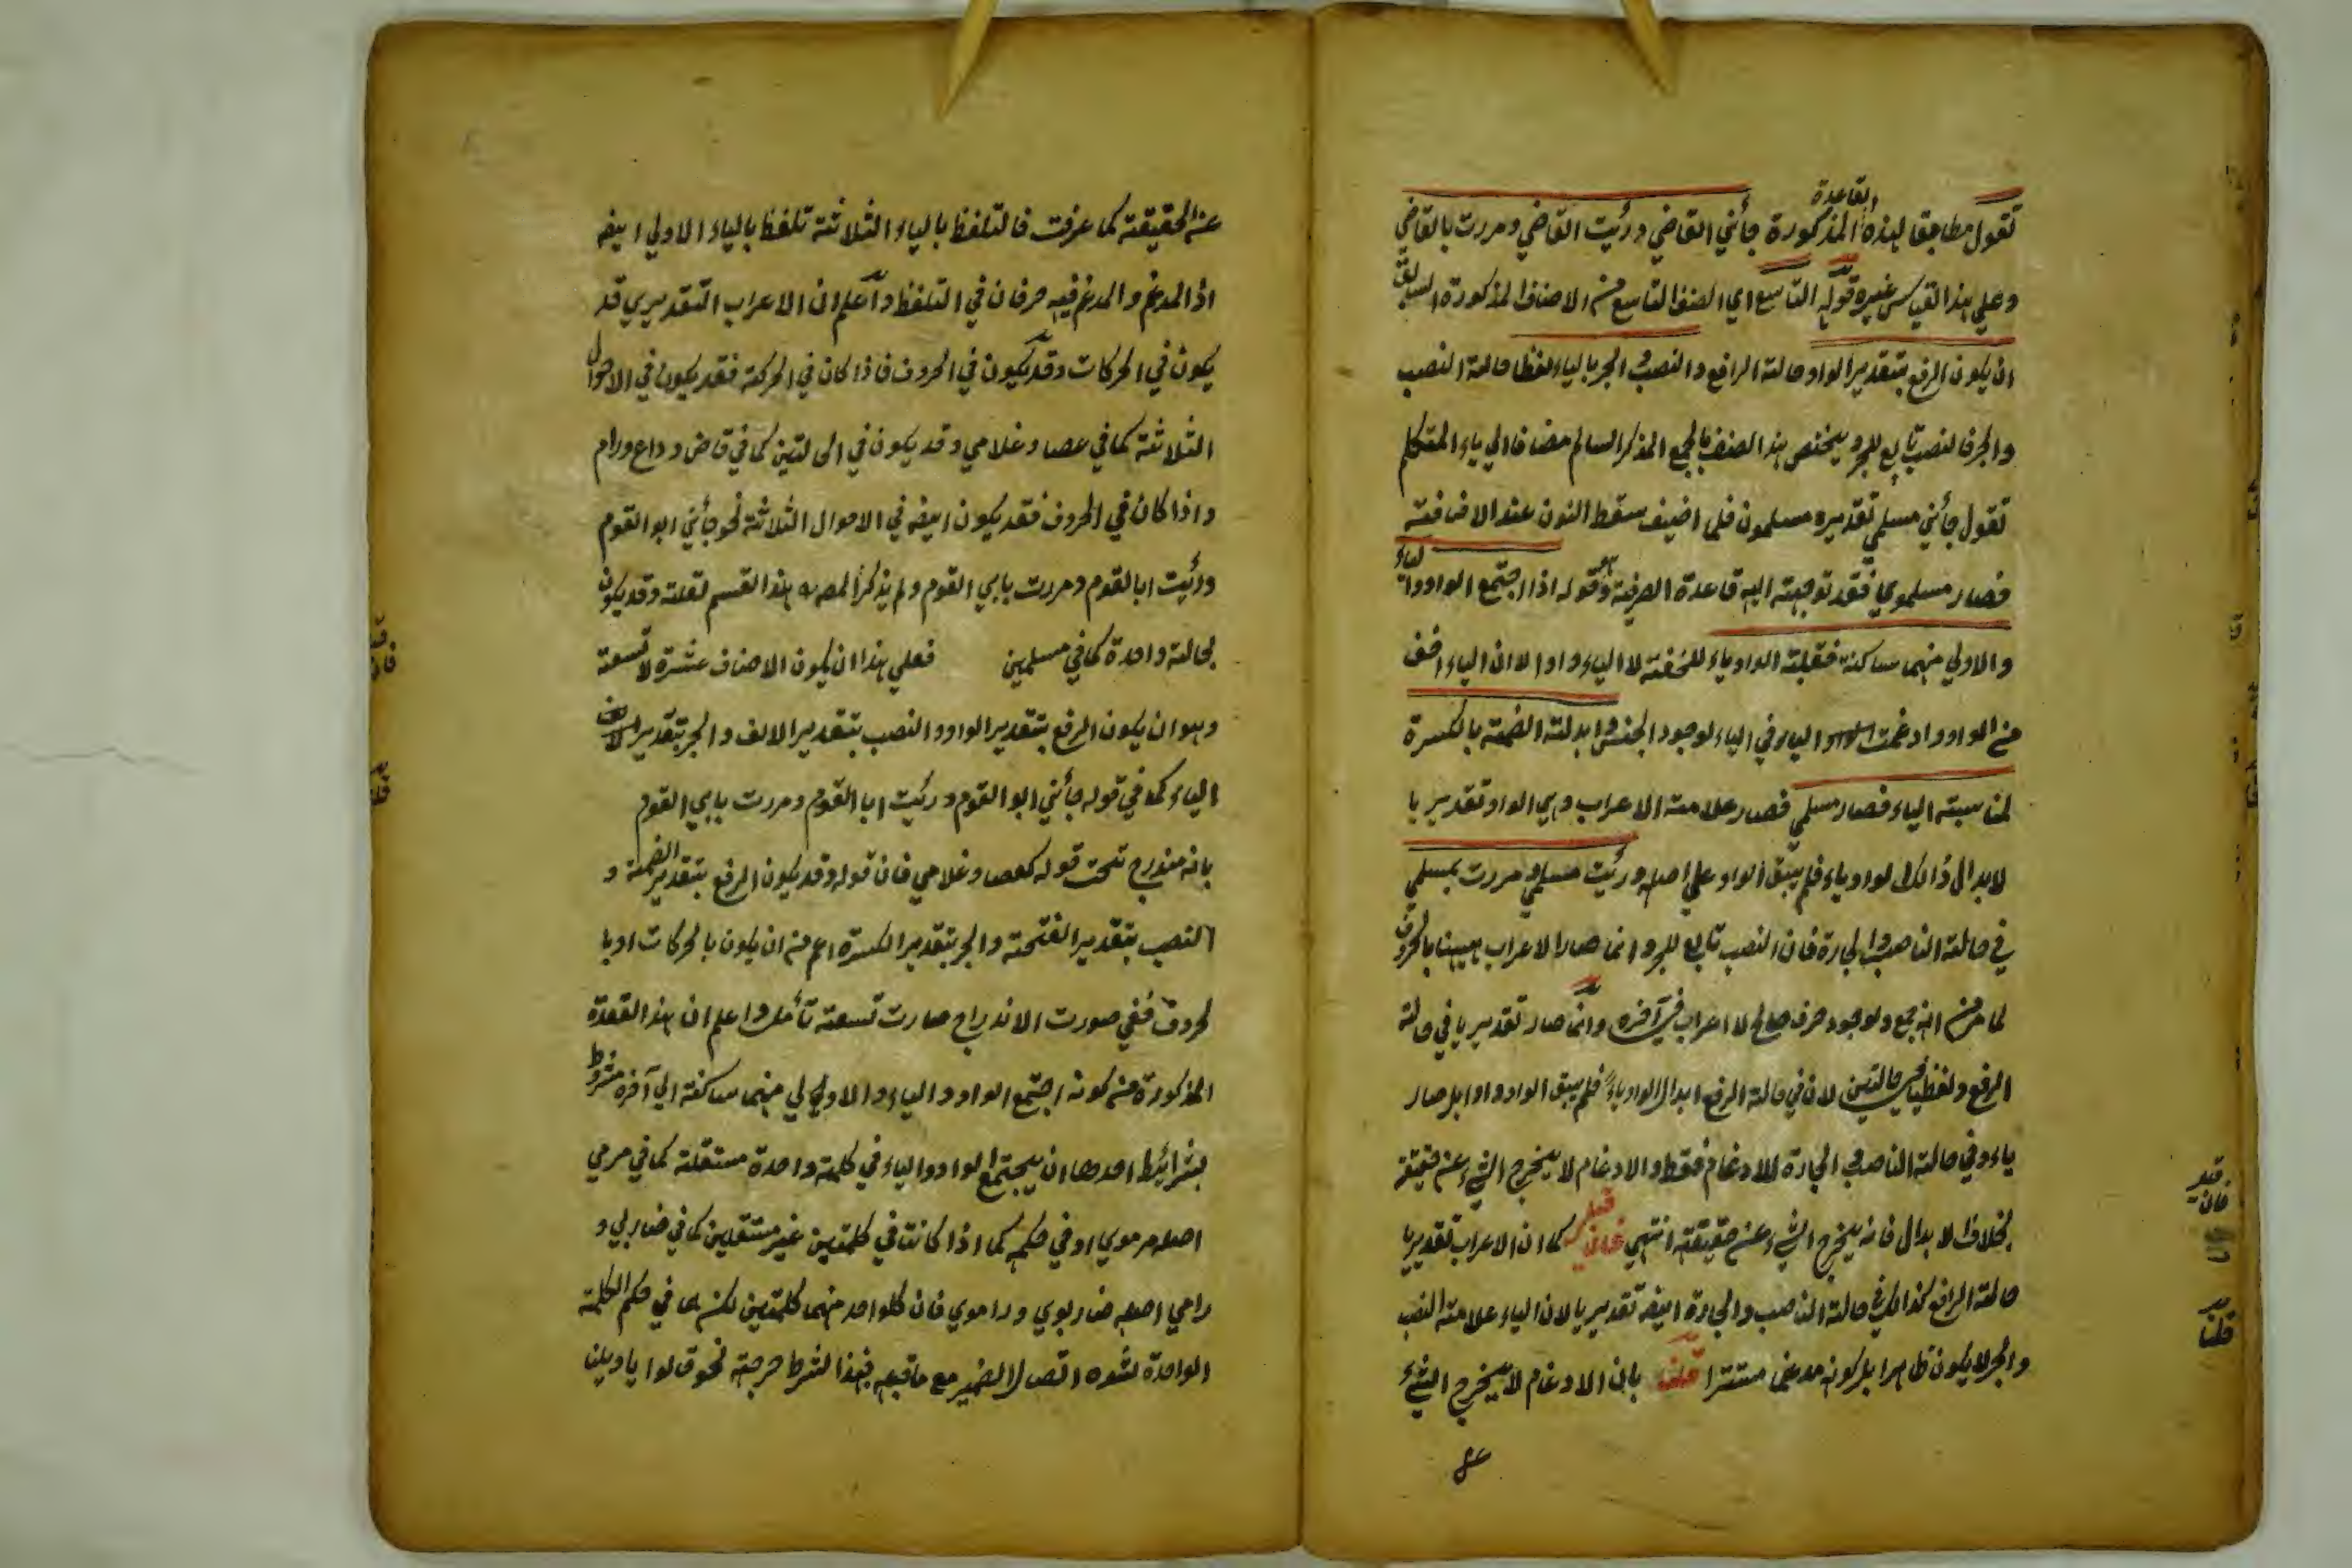 القاعدة
تقول مطابقا لهذه المذكورة جأني القاضي ورئيت القاضي ومررت بالقاضي
وعلي هذا القياس غيره قوله التاسع اي الصنف التاسع من الاصناف المذكورة السابق
ان يكون الرفع بتقدير الواو حالة الرافع والنصب والجر بالياء لفظا حالة النصب
والجر فالنصب تابع للجر ويختص هذا الصنف بالجمع المذكر السالم مضافا الي ياء المتكلم
تقول جأني مسلمي تقديره مسلمون فلما اضيف سقط النون عند الاضافة
فصار مسلموي فقد توجهت اليه قاعدة الصرفية وقوله اذا اجتمع الواو والياء
والاولي منهما ساكنة فقلبت الواو ياء للخفة لا الياء واوا لان الياء اخف
من الواو وادغمت الياء في الياء لوجود الجنس وابدلت الضمة بالكسرة
لمناسبة الياء فصار مسلمي فصار علامة الاعراب وهي الواو تقديريا
لابدال ذالك الواو ياء فلم يبق الواو علي اصله ورئيت مسلمي ومررت بمسلمي
في حالة الناصب والجارة فان النصب تابع للجر وانما صار الاعراب ههنا بالحروف
لما مر من انه جمع ولوجود حرف صالح لاعراب في آخره وانما صار تقديريا في حالة
الرفع ولفظيا في حالتين لان في حالة الرفع ابدال الواو ياء فلم يبق الواو واوا بل صار
ياء وفي حالة الناصب والجارة الادغام فقط والادغام لا يخرج الشيء عن حقيقته
بخلاف الابدال فانه يخرج الشيء عن حقيقته انتهي فان قيل كما ان الاعراب تقديريا
حالة الرافع كذالك في حالة الناصب والجارة ايضه تقديريا لان الياء علامة النصب
والجر لا يكون ظاهرا بل كونه مدغما مستترا قلنا بان الادغام لا يخرج الشئ
قيل
فان
قلنا
عن الحقيقة كما عرفت فالتلفظ بالياء الثلاثة تلفظ بالياء الاولي ايضه
اذ المدغم والمدغم فيه حرفان في التلفظ واعلم ان الاعراب التقديري قد
يكون في الحركات وقد يكون في الحروف فاذا كان في الحركة فقد يكون في الاحوال
الثلاثة كما في عصا وغلامي وقد يكون في الحالتين كما في قاض وداع ورام
واذا كان في الحروف فقد يكون ايضه في الاحوال الثلاثة نحو جأني ابو القوم
ورأيت ابا القوم ومررت بابي القوم ولم يذكر المصـ هذا القسم لقلة وقد يكون
لحالة واحدة كما في مسلمين فعلي هذا ان يكون الاصناف عشرة لا تسعة
وهو ان يكون الرفع بتقدير الواو والنصب بتقدير الالف والجر بتقدير
الياء كما في قوله جأني ابو القوم ورئيت ابا القوم ومررت بابي القوم
بانه مندرج تحت قوله كعصا وغلامي فان قوله وقد يكون الرفع بتقدير الضمة و
النصب بتقدير الفتحة والجر بتقدير الكسرة اعم من ان يكون بالحركات او با
لحروف ففي صورت الاندراج صارت تسعة تأمل واعلم ان هذا القعدة
المذكورة من كونه اجتمع الواو والياء والاولي منهما ساكنة الي آخره مشروط
بشرائط احدها ان يجتمع الواو والياء في كلمة واحدة مستقلة كما في مرمي
اصله مرموي او في حكمه كما اذا كانتا في كلمتين غير مستقلين كما في ضاربي و
رامي اصله ضاربوي وراموي فان كلواحد منهما كلمتين لكنهما في حكم الكلمة
الواحدة لشدة اتصال الضمير مع ماقبله فبهذا الشرط خرجت نحو قالوا ياويلنا